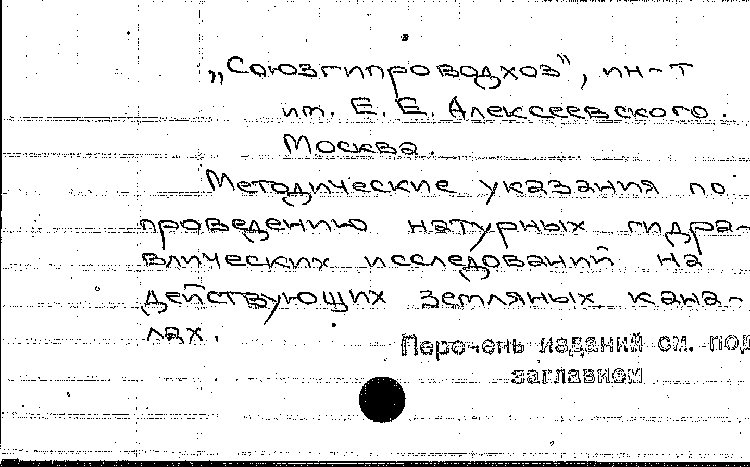 „Союзгипроводхоз", ин-т
им. Е. Е. Алексеевского.
Москва.
Методические указания по
проведению натурных гидра-
влических исследований на
действующих земляных кана-
лах.
Перечень изданий см. под
заглавием